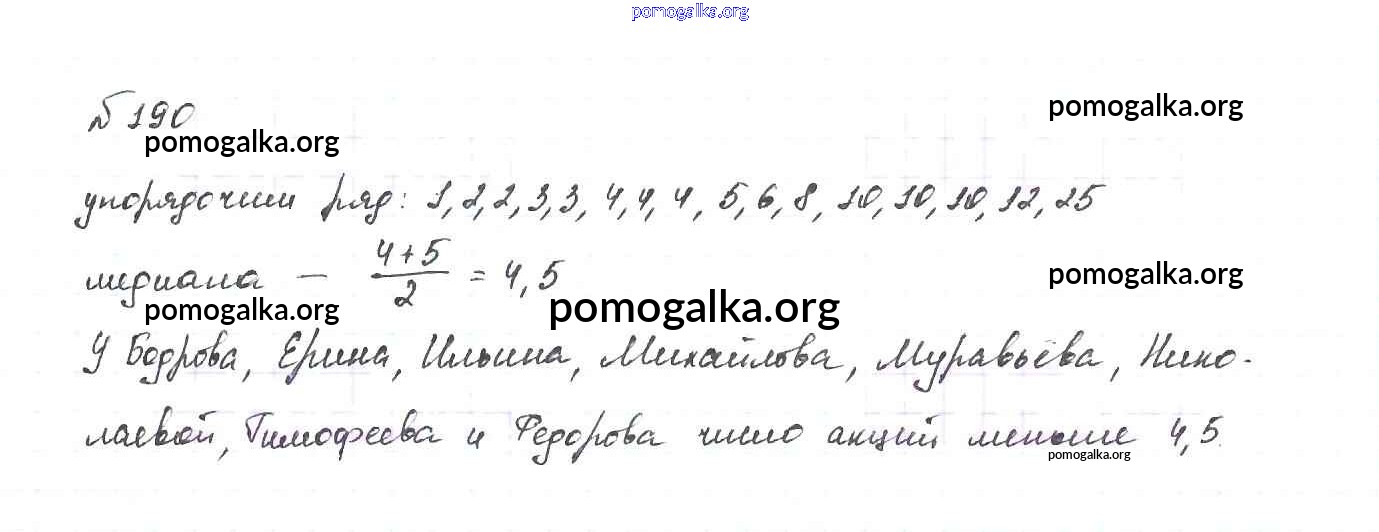 pomogalka.org
№ 190
pomogalka.org
pomogalka.org
упорядочим ряд: 1, 2, 2, 3, 3, 4, 4, 4, 5, 6, 8, 10, 10, 10, 12, 25
медиана — (4+5)/2 = 4,5
pomogalka.org
pomogalka.org
pomogalka.org
У Бодрова, Ерина, Ильина, Михайлова, Муравьёва, Нико-
лаевой, Тимофеева и Федорова число акций меньше 4,5.
pomogalka.org